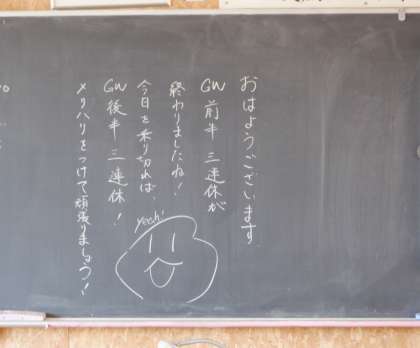 おはようございます。
GW前半三連休が
終わりましたね!
今日を乗り切れば、
GW後半三連休!
メリハリをつけて頑張りましょう!
yeah!